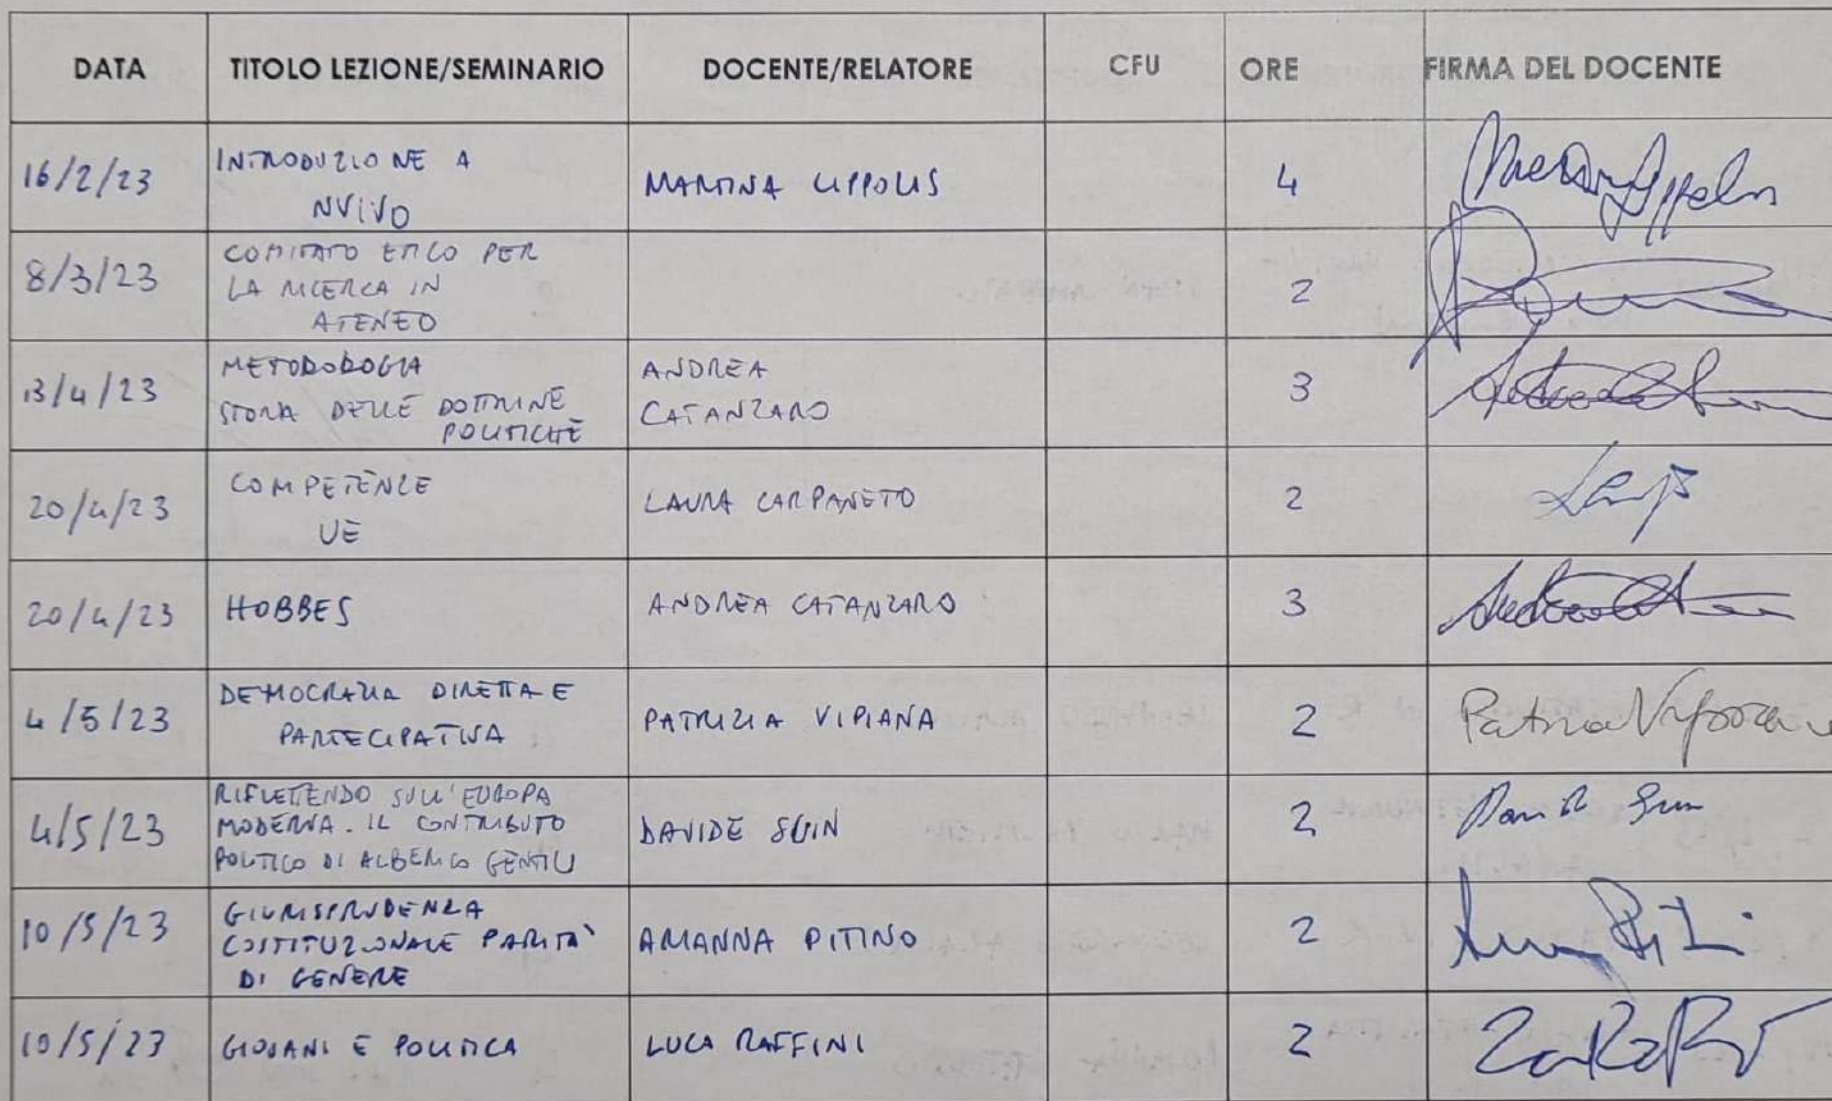 DATA TITOLO LEZIONE/SEMINARIO DOCENTE/RELATORE CFU ORE FIRMA DEL DOCENTE
16/2/23 INTRODUZIONE A
NVIVO MARTINA LIPPOLIS 4
8/3/23 COMITATO ETICO PER
LA RICERCA IN
ATENEO 2
13/4/23 METODOLOGIA
STORIA DELLE DOTTRINE
POLITICHE ANDREA
CATANZARO 3
20/4/23 COMPETENZE
UE LAURA CARPANETO 2
20/4/23 HOBBES ANDREA CATANZARO 3
4/5/23 DEMOCRAZIA DIRETTA E
PARTECIPATIVA PATRIZIA VIPIANA 2 Patrizia Vipiana
4/5/23 RIFLETTENDO SULL'EUROPA
MODERNA. IL CONTRIBUTO
POLITICO DI ALBERICO GENTILI DAVIDE SUIN 2 Davide Suin
10/5/23 GIURISPRUDENZA
COSTITUZIONALE PARITA'
DI GENERE ARIANNA PITINO 2
10/5/23 GIOVANI E POLITICA LUCA RAFFINI 2